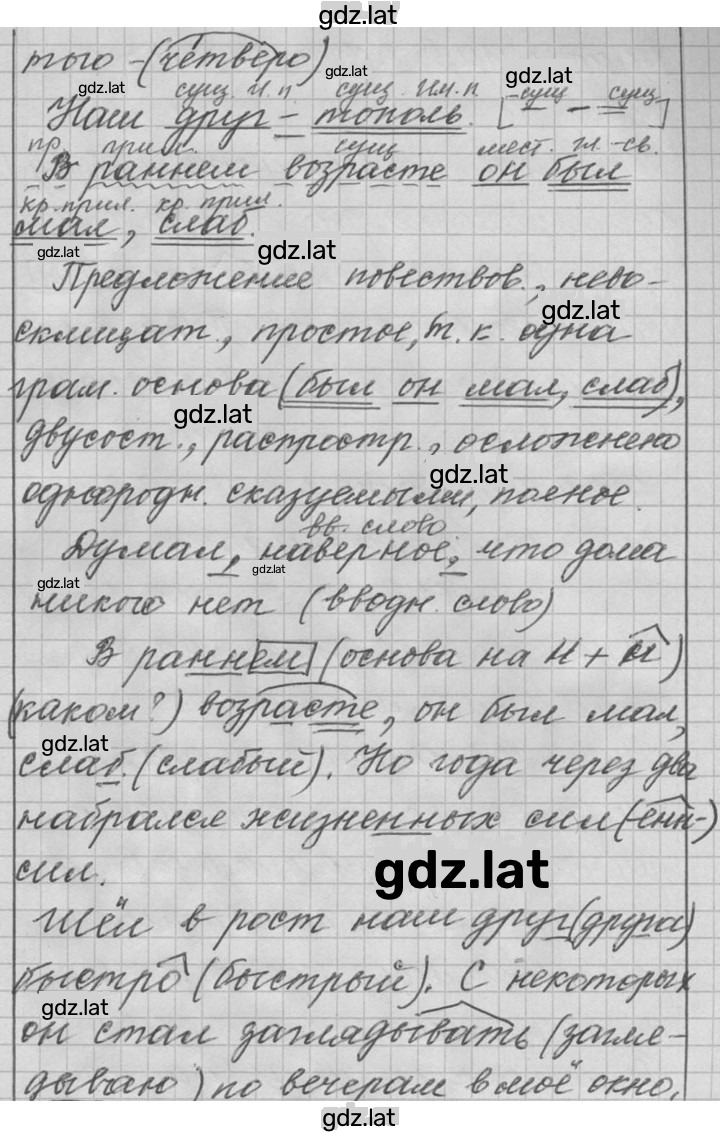 gdz.lat
того - (четверо)
gdz.lat
сущ. И.п сущ. Им.п gdz.lat сущ сущ
Наш друг - тополь. [ - ]
gdz.lat
пр. прил. сущ мест. гл.-св.
В раннем возрасте он был
кр.прил. кр. прил.
мал, слаб.
gdz.lat gdz.lat
Предложение повествов., нево-
gdz.lat
склицат., простое, т. к. одна
грам. основа (был он мал, слаб),
gdz.lat
двусост., распростр., осложнено
gdz.lat
однородн. сказуемыми, полное.
вв. слово
Думал, наверное, что дома
gdz.lat gdz.lat
никого нет (вводн. слово)
В раннем (основа на Н + Н)
(каком?) возрасте, он был мал,
gdz.lat
слаб. (слабый). Но года через два
набрался жизненных сил (-енн-)
gdz.lat
сил.
Шёл в рост наш друг (друга)
быстро (быстрый). С некоторых
gdz.lat
он стал заглядывать (загля-
дываю) по вечерам в моё окно.
gdz.lat